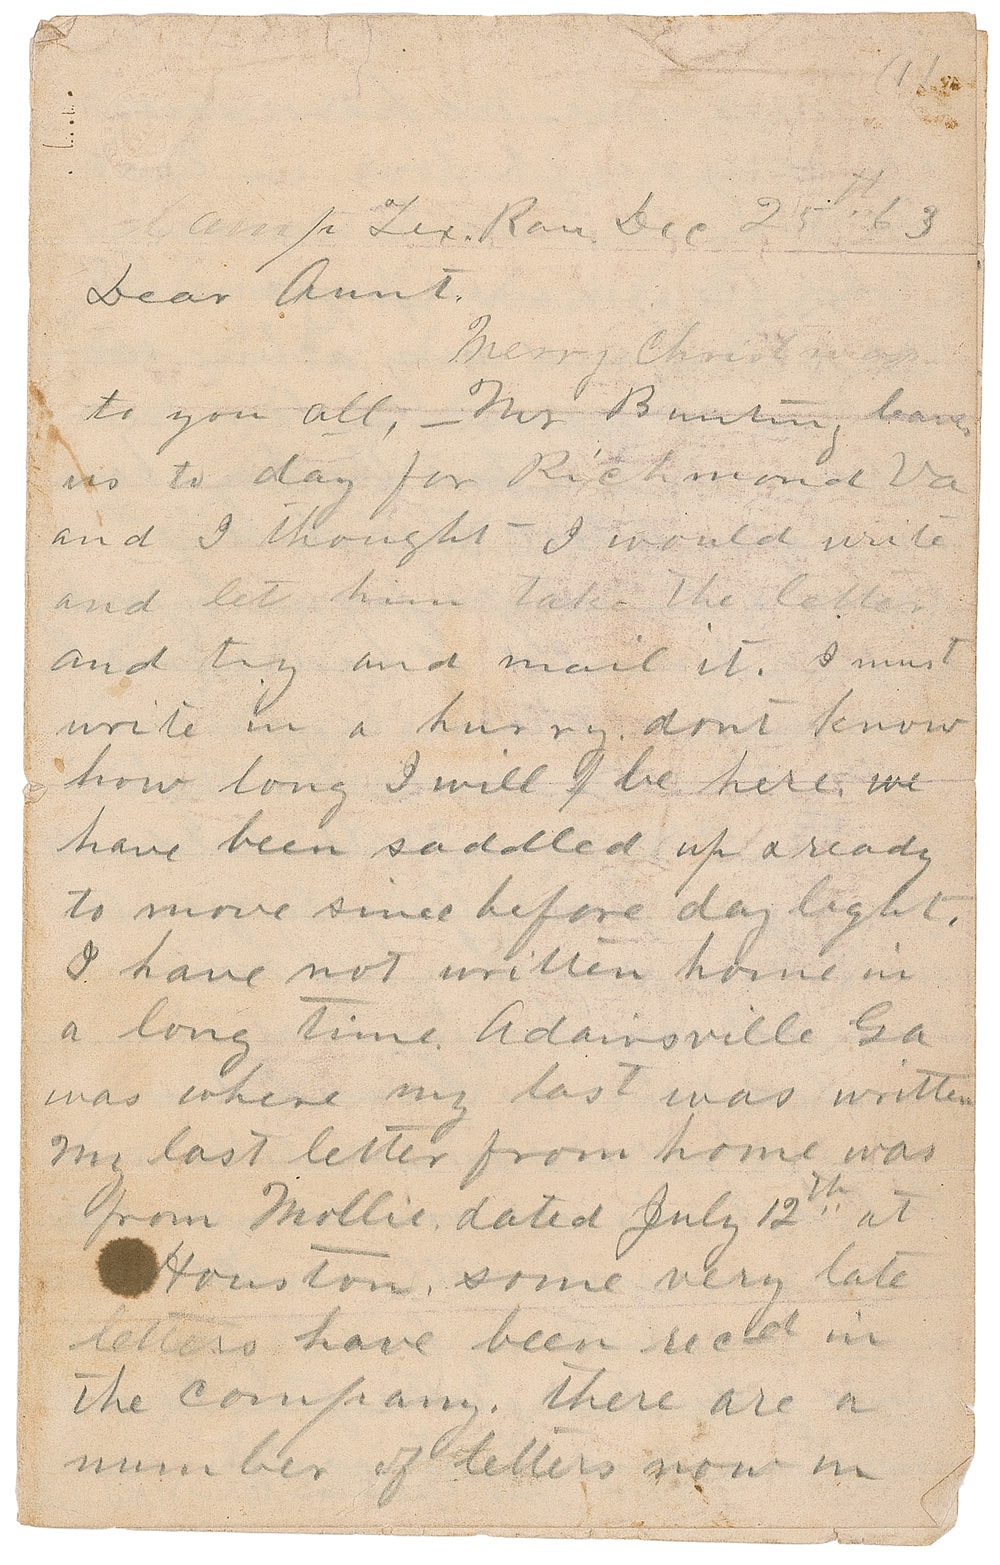 (1)
Camp Tex. Ran. Dec 25th 63
Dear Aunt.
Merry Christmas
to you all, — Mr Bunting leaves
us to day for Richmond Va
and I thought I would write
and let him take the letter
and try and mail it. I must
write in a hurry. dont know
how long I will be here. we
have been saddled up & ready
to move since before day light.
I have not written home in
a long time. Adairsville Ga
was where my last was written
My last letter from home was
from Mollie. dated July 12th at
Houston. some very late
letters have been recd in
the company. there are a
number of letters now in